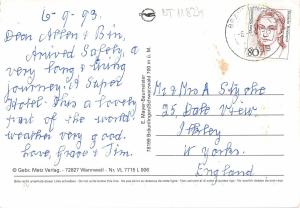 6-9-93.
Dear Allen & Bin,
Arrived Safely, a
very long & tiring
journey. A Super
Hotel. This a lovely
part of the world,
weather very good.
Love, Grace & Jim.
© Gebr. Metz Verlag - 72827 Wannweil - Nr. VL 7715 L 806
E. Mayer-Baumeister
78199 Bräunlingen/Schwarzwald 700 m ü. M.
BT 11824
80
Mr & Mrs A
25, Dale View,
Ilkley
W Yorks.
England